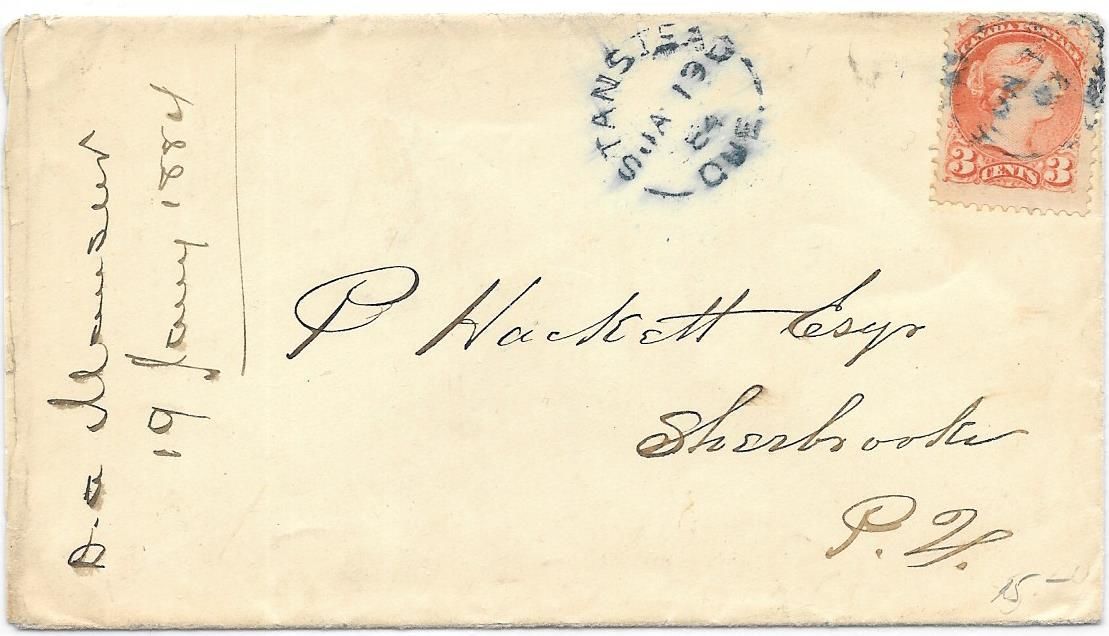 STANSTEAD
JA 19
84
QUE.
CANADA POSTAGE
3 CENTS 3
P Hackett Esqr
Sherbrooke
P. Q.
19 Jany 1884
15-